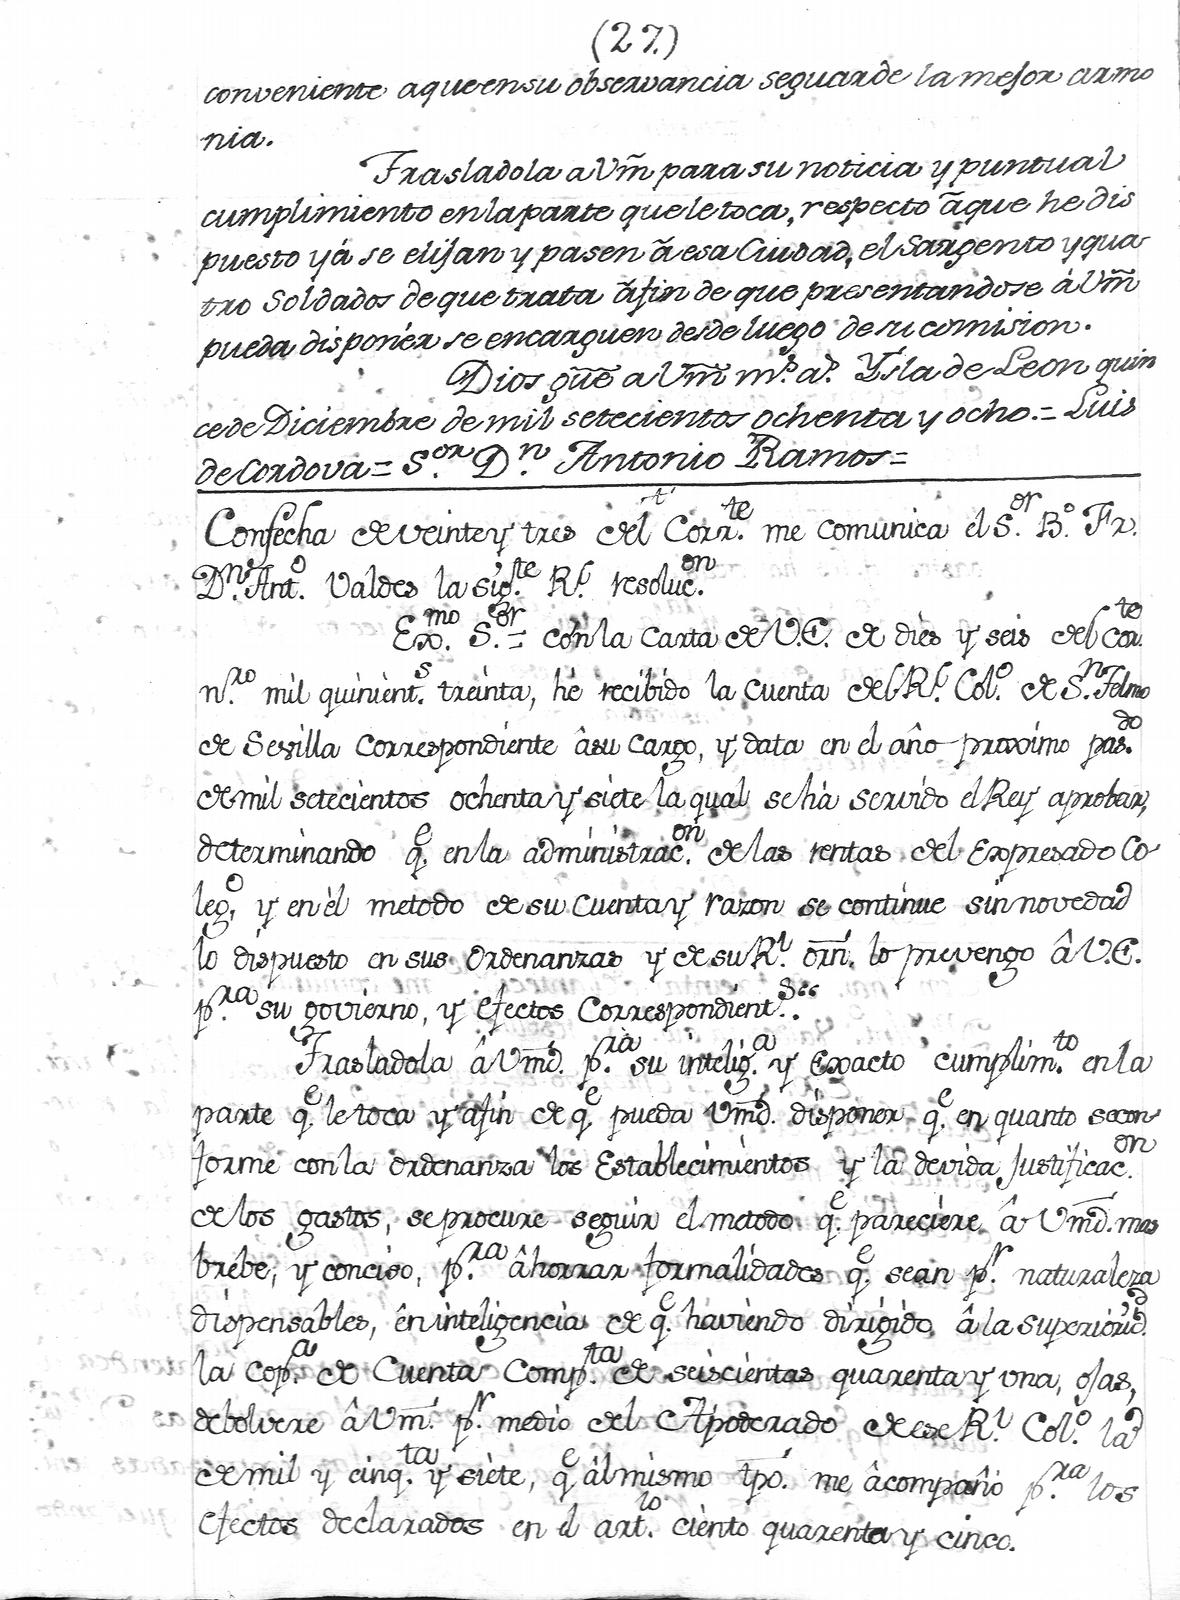 (27.)
conveniente aqueensu observancia seguarde la mejor armo
nia.
Trasladola a Vm̃ para su noticia y puntual
cumplimiento enlaparte queletoca, respecto ãque he dis
puesto yá se elijan y pasen ã esa Ciudad, el Sargento y qua
tro Soldados de que trata ãfin de que presentandose á Vm̃
pueda disponér se encarguen desde luego de su comision.
Dios gũe a Vm̃ m.ˢ a.ˢ Ysla de Leon quin
ce de Diciembre de mil setecientos ochenta y ocho.= Luis
de Cordova = S.ᵒʳ D.ⁿ Antonio Ramos=
Confecha de veinte y tres del Corr.ᵗᵉ me comunica el S.ᵒʳ B.ᵒ Fr.
D.ⁿ Ant.ᵒ Valdes la sig.ᵗᵉ R.ˡ resoluc.ᵒⁿ
Ex.ᵐᵒ S.ᵒʳ = con la Carta de V.E. de dies y seis del Cor.ᵗᵉ
n.ʳᵒ mil quinient.ˢ treinta, hé recibido la Cuenta del R.ˡ Col.ᵒ de S.ⁿ Telmo
de Sevilla Correspondiente âsu Cargo, y data en el año proximo pas.ᵈᵒ
de mil setecientos ochenta y siete la qual seha servido el Rey aprobar,
determinando q.ᵉ enla administrac.ᵒⁿ de las rentas del Expresado Co
leg.ᵒ, y en él metodo de su Cuenta y razon se continue sin novedad
lo dispuesto en sus Ordenanzas y de su R.ˡ orñ. lo prevengo â V.E.
p.ʳᵃ su govierno, y Efectos Correspondient.ˢ "
Trasladola â Vmd̃. p.ʳᵃ su intelig.ᵃ y Exacto cumplim.ᵗᵒ en la
parte q.ᵉ le toca y afin de q.ᵉ pueda Vmd̃. disponer q.ᵉ en quanto secon
forme con la ordenanza los Establecimientos y la devida Justificac.ᵒⁿ
de los gastos, se procure seguir el metodo q.ᵉ pareciere â Vmd̃. mas
brebe, y conciso, p.ʳᵃ âhorrar formalidades q.ᵉ sean p.ʳ naturaleza
dispensables, ên inteligencia de q.ᵉ haviendo dirigido â la superiorid.ᵈ
la Cop.ᵃ de Cuenta Comp.ᵗᵃ de seiscientas quarenta y una, ojas,
debolvere â Vm̃. p.ʳ medio del Apoderado de ese R.ˡ Col.ᵒ la
de mil y cinq.ᵗᵃ y siete, q.ᵉ âl mismo tpõ. me âcompañó p.ʳᵃ los
Efectos declarados en el art.ˡᵒ ciento quarenta y cinco.